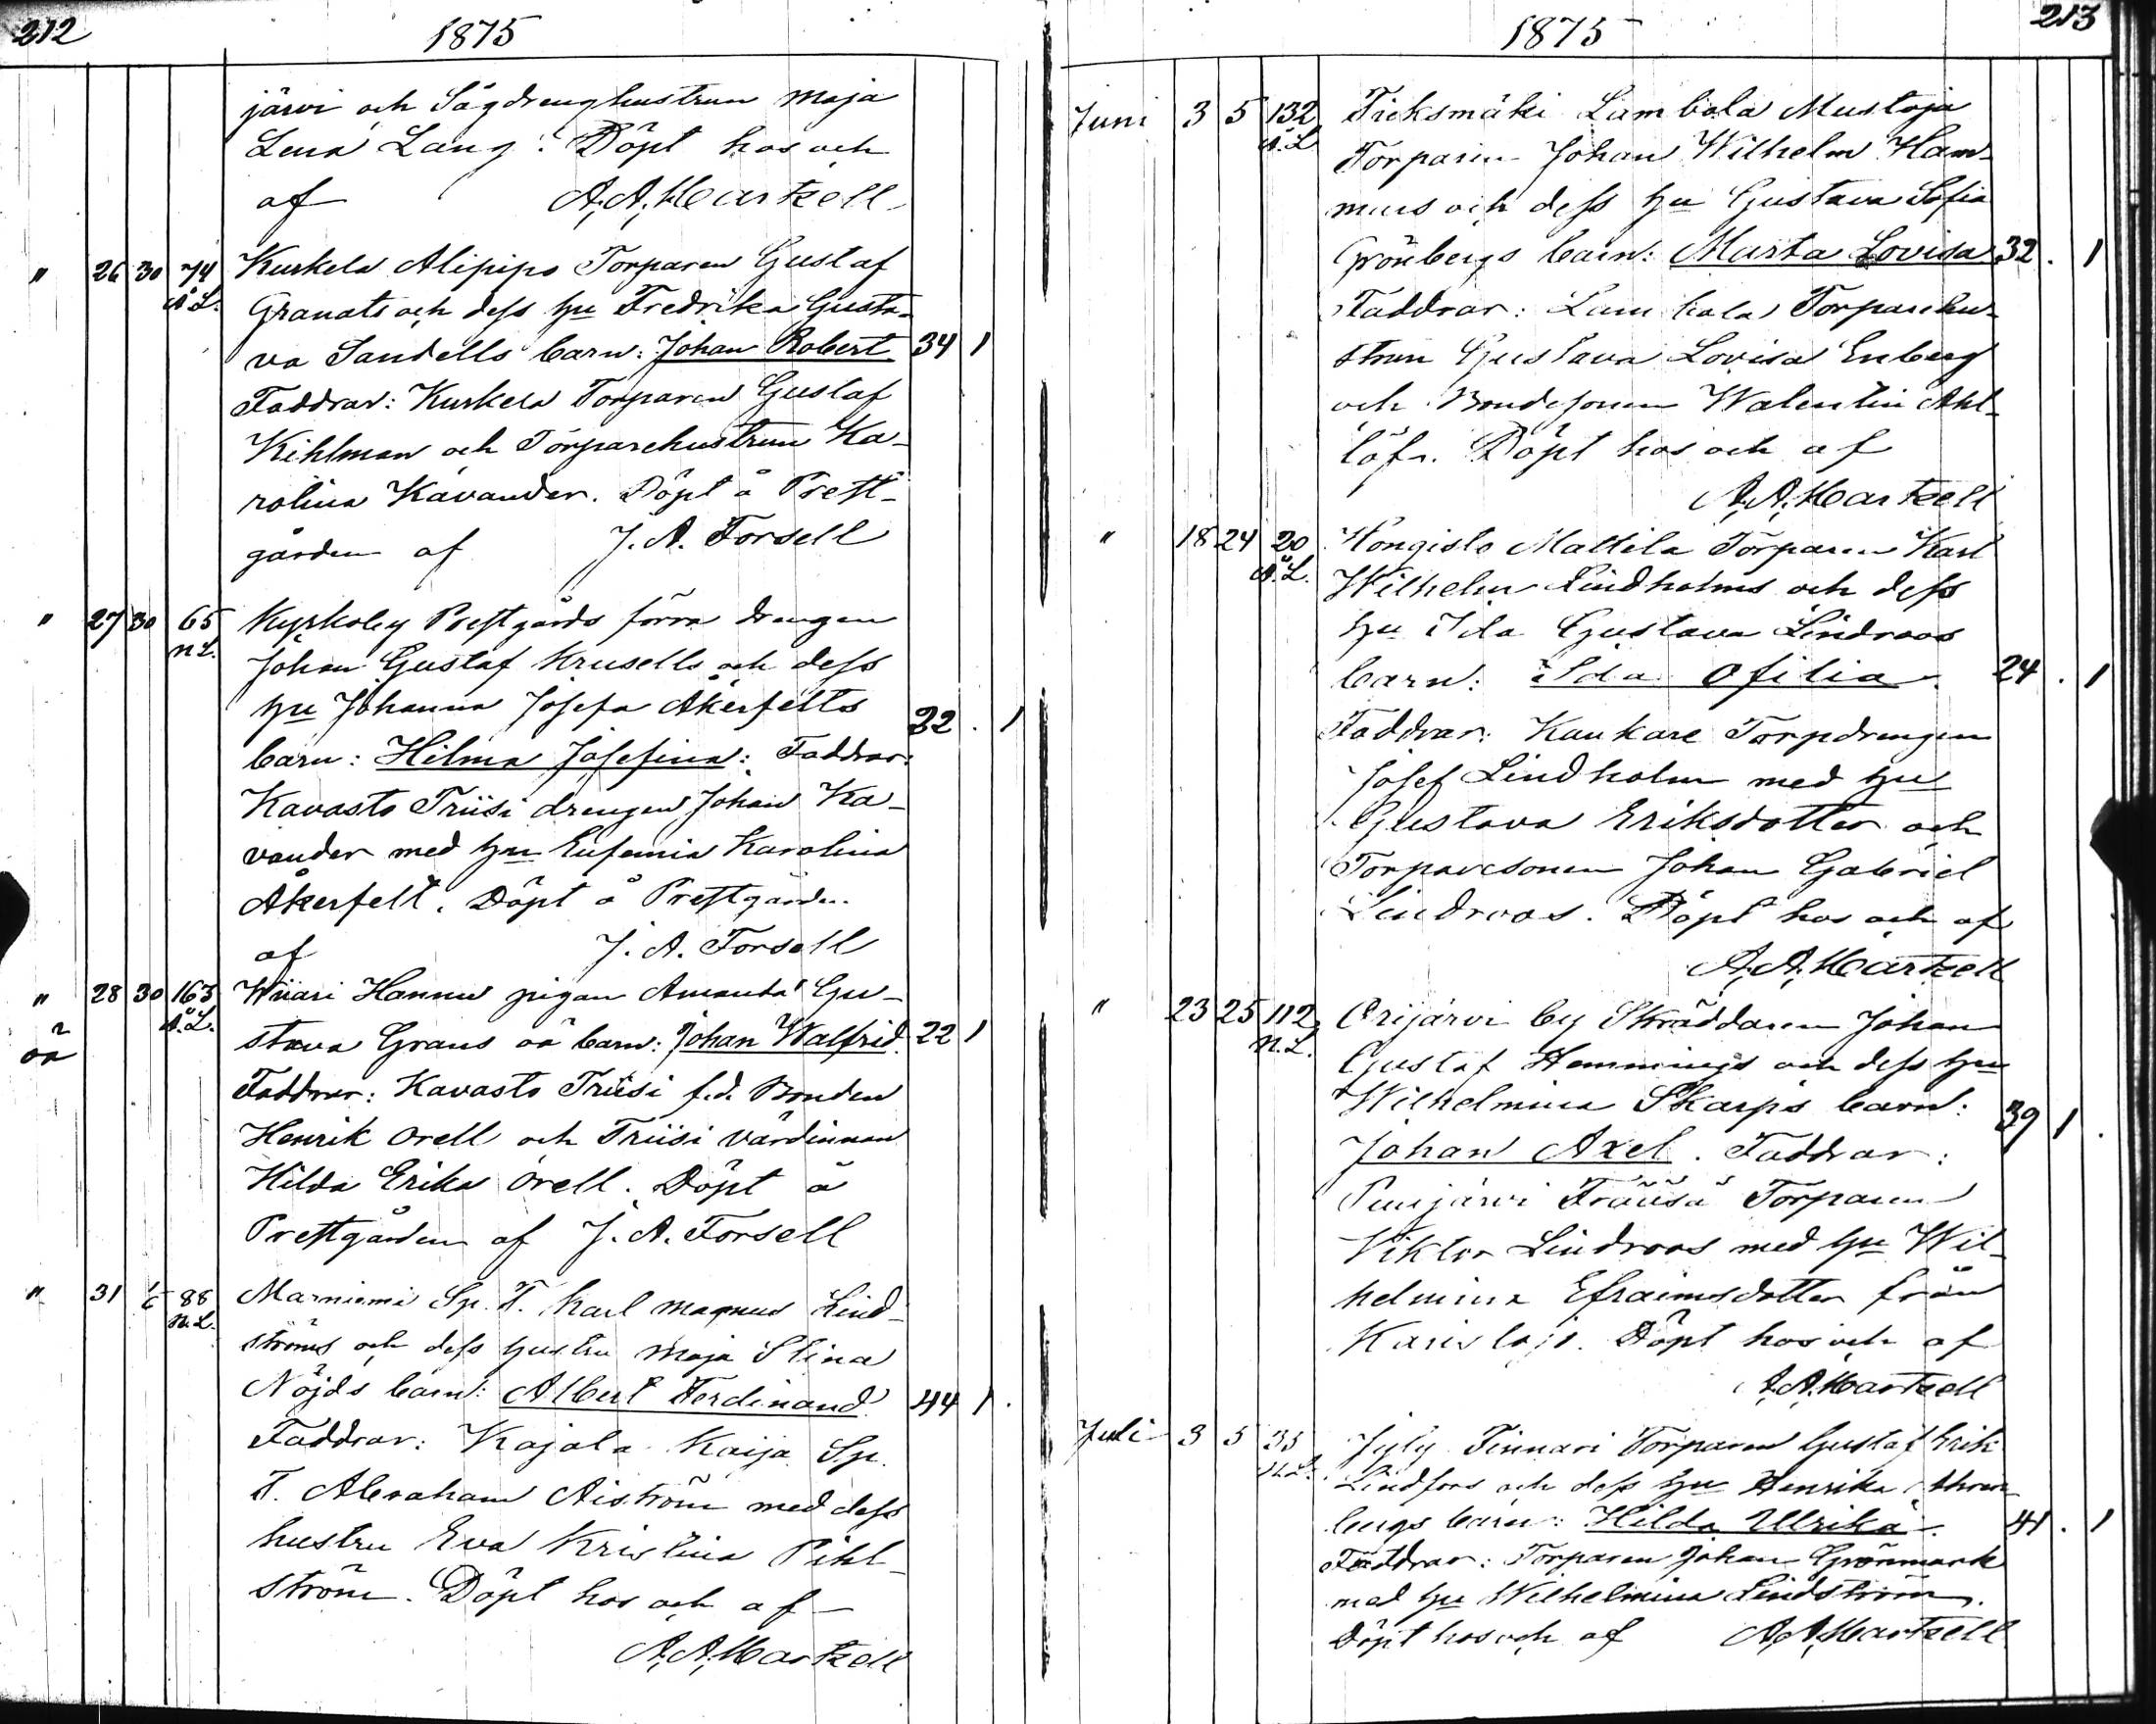 212
1875
järvi och Sågdrenghustrun Maja
Lena Lang: Döpt hos och
af A. A. Hartzell
" 26 30 74 Kurkela Alipipo Torparen Gustaf
Å.L. Granats och dess hu Fredrika Gusta-
va Sandells barn: Johan Robert 34 1
Faddrar: Kurkela Torparen Gustaf
Kihlman och Torparehustrun Ka-
rolina Kavander. Döpt å Prest-
gården af J. A. Forsell
" 27 30 65 Kyrkoby Prestgårds förra drengen
n.L. Johan Gustaf Krusells och dess
hu Johanna Josefa Åkerfelts 22 . 1
barn: Hilma Josefina: Faddrar:
Kavasto Triisi drengen Johan Ka-
vander med hu Eufemia Karolina
Åkerfelt. Döpt å Prestgården
af J. A. Forsell
" 28 30 163 Wiiari Hannu pigan Amanda Gu-
oä Å.L. stava Grans oä barn: Johan Walfrid. 22 1
Faddrar: Kavasto Triisi f.d. Bonden
Henrik Orell och Triisi värdinnan
Hilda Erika Orell. Döpt å
Prestgården af J. A. Forsell
" 31 1/6 88 Marniemi Sp. T. Karl Magnus Lind-
N.L. ströms och dess hustru Maja Stina
Nöjds barn: Albert Ferdinand 44 1 .
Faddrar: Kajala Kaija Sp.
T. Abraham Aiström med dess
hustru Eva Kristina Pihl-
ström. Döpt hos och af
A. A. Hartzell
1875
213
Juni 3 5 132 Lambola Mustoja
Å.L. Torparen Johan Wilhelm Ham-
mars och dess hu Gustava Sofia
Grönbergs barn: Marta Lovisa 32 . 1
Faddrar: Lambola Torparehu-
strun Gustava Lovisa Enberg
och Bondesonen Walentin Ahl-
löf. Döpt hos och af
A. A. Hartzell
" 18 24 20 Hongisto Mattila Torparen Karl
Å.L. Wilhelm Lindholms och dess
hu Ida Gustava Lindroos
barn: Ida Ofilia. 24 . 1
Faddrar: Kaukare Torpdrengen
Josef Lindholm med hu
Gustava Eriksdotter och
Torparesonen Johan Gabriel
Lindroos. Döpt hos och af
A. A. Hartzell
" 23 25 112 Orijärvi by Skräddaren Johan
N.L. Gustaf Hemmings och dess hu
Wilhelmina Skarps barn: 39 1 .
Johan Axel. Faddrar:
Torparen
Viktor Lindroos med hu Wil-
helmina Efraimsdotter från
Karislojo. Döpt hos och af
A. A. Hartzell
Juli 3 5 35 Jyly Finnari Torparen Gustaf Erik
N.L. Lindfors och dess hu Henrika
barn: Hilda Ulrika. 41 . 1
Faddrar: Torparen Johan Grönmark
med hu Wilhelmina Lindström.
Döpt hos och af A. A. Hartzell